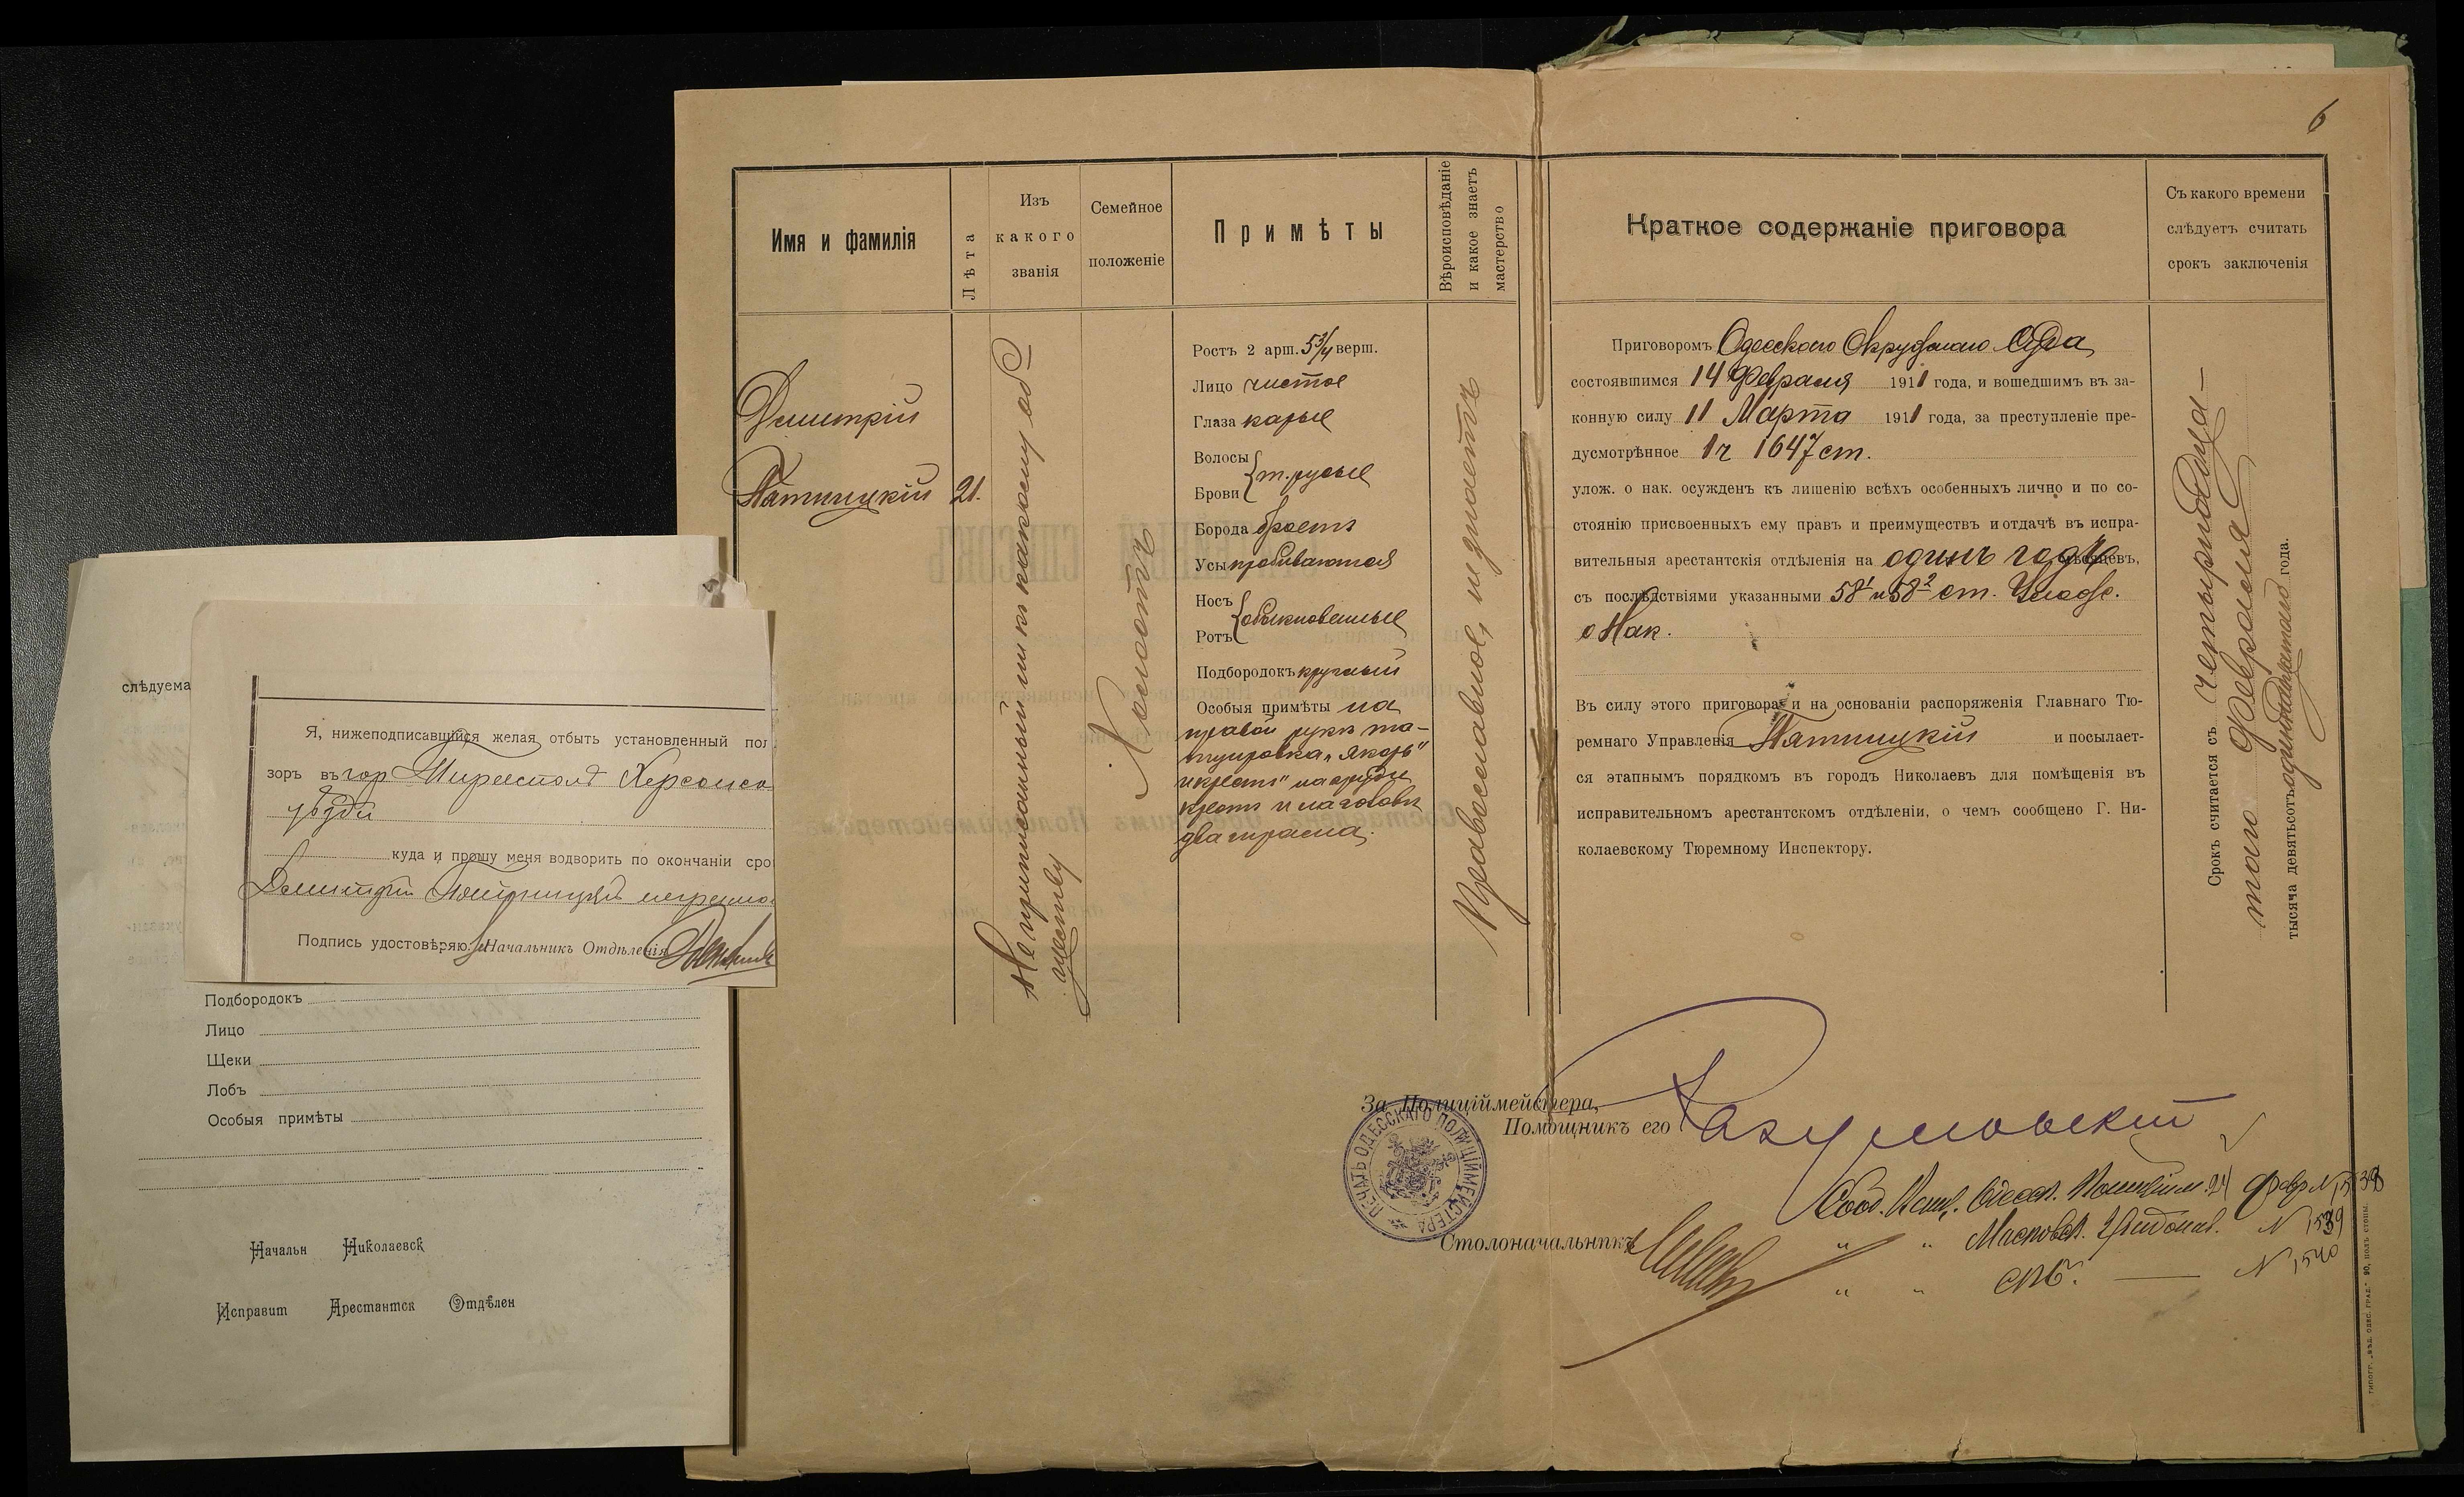 6
Имя и фамилія
Лѣта
Изъ
какого
званія
Семейное
положеніе
Примѣты
Вѣроисповѣданіе
и какое знаетъ
мастерство
Краткое содержаніе приговора
Съ какого времени
слѣдуетъ считать
срокъ заключенія
Димитрій
Пятницкій
21.
Не приписанный ни къ какому об-
ществу
Холостъ
Ростъ 2 арш. 5 3/4 верш.
Лицо чистое
Глаза карые
Волосы
т. русые
Брови
Борода бреетъ
Усы пробиваются
Носъ
обыкновенные
Ротъ
Подбородокъ круглый
Особыя примѣты на
правой рукѣ та-
туировка „якорь"
и крестъ" на груди
крестъ и на головѣ
два шрама.
Православное, не знаетъ
Приговоромъ Одесскаго Окружнаго Суда
состоявшимся 14 Февраля 1911 года, и вошедшимъ въ за-
конную силу 11 Марта 1911 года, за преступленіе пре-
дусмотрѣнное 1 ч 1647 ст.
улож. о нак. осужденъ къ лишенію всѣхъ особенныхъ лично и по со-
стоянію присвоенныхъ ему правъ и преимуществъ и отдачѣ въ испра-
вительныя арестантскія отдѣленія на одинъ годъ мѣсяцевъ,
съ послѣдствіями указанными 58¹ и 58² ст. Улож.
о Нак.
Въ силу этого приговора и на основаніи распоряженія Главнаго Тю-
ремнаго Управленія Пятницкій и посылает-
ся этапнымъ порядкомъ въ городъ Николаевъ для помѣщенія въ
исправительномъ арестантскомъ отдѣленіи, о чемъ сообщено Г. Ни-
колаевскому Тюремному Инспектору.
Срокъ считается съ Четырнадца-
таго Февраля
тысяча девятьсотъ одиннадцатаго года.
За Полиціймейстера,
Помощникъ его Разумовскій
ПЕЧАТЬ ОДЕССКАГО ПОЛИЦІЙМЕЙСТЕРА
Столоначальникъ
Сооб. Одесск. Полиційм. 24 Февр N 1538
" " Московск. Градонач. N 1539
" " СПб. — N 1540
слѣдуема
Я, нижеподписавшійся желая отбыть установленный
зоръ въ гор Тирасполѣ Херсонско
уѣзда
куда и прошу меня водворить по окончаніи сро
Димитрій Пятницкій неграмо
Подпись удостовѣряю: Начальникъ Отдѣленія
Подбородокъ
Лицо
Щеки
Лобъ
Особыя примѣты
Начальн Николаевск
Исправит Арестантск Отдѣлен